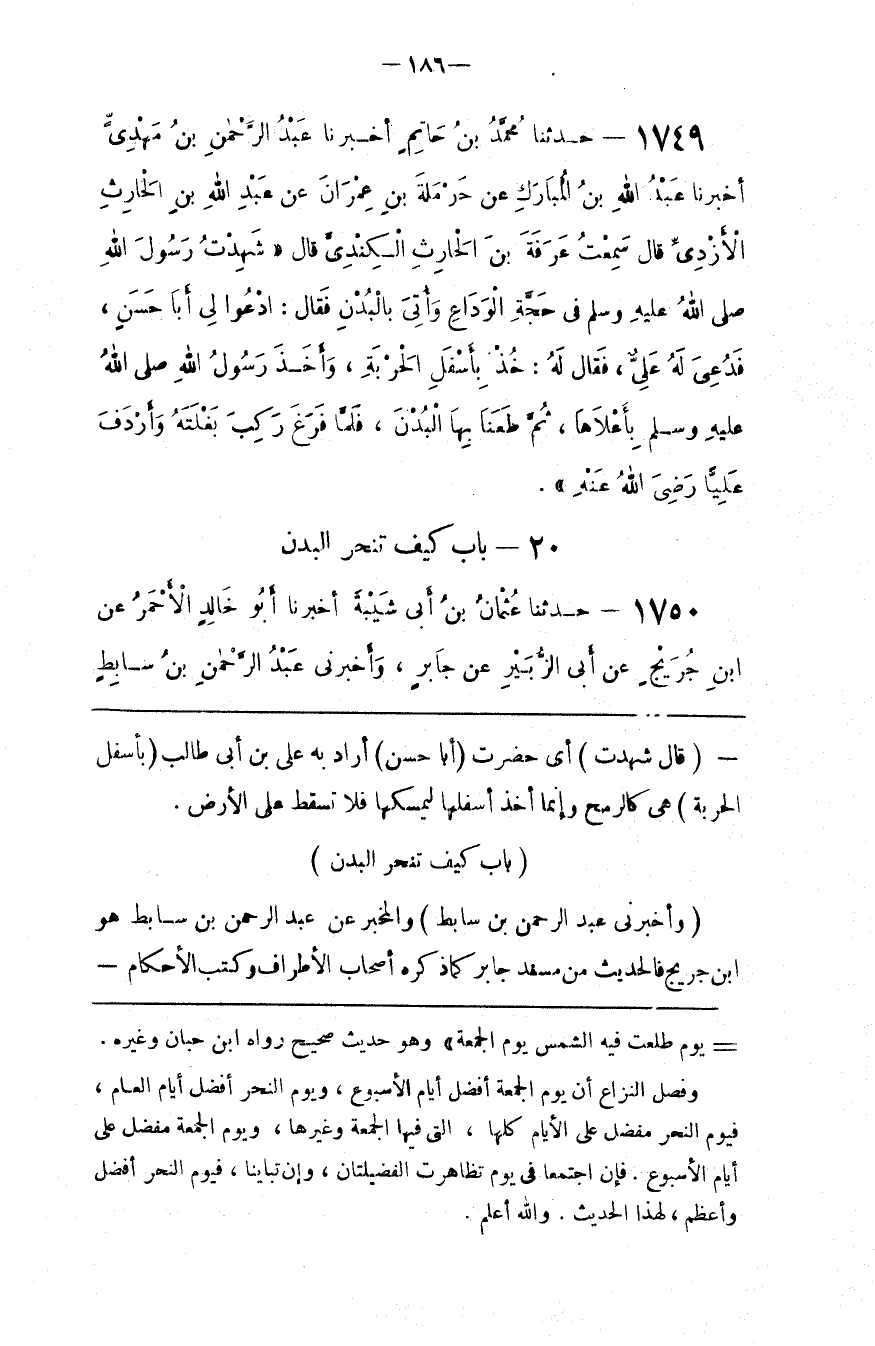 — ١٨٦ —
١٧٤٩ — حـدثنا مُحَمَّدُ بنُ حَاتِمٍ أخـبرنا عَبْدُ الرَّحْمٰنِ بنُ مَهْدِىٍّ
أخبرنا عَبْدُ اللهِ بنُ الْمُبَارَكِ عن حَرْمَلَةَ بنِ عِمْرَانَ عن عَبْدِ اللهِ بنِ الْحَارِثِ
الْأَزْدِىِّ قال سَمِعْتُ عَرَفَةَ بنَ الْحَارِثِ الْـكِنْدِىَّ قال « شَهِدْتُ رَسُولَ اللهِ
صلى اللهُ عليهِ وسلم فى حَجَّةِ الْوَدَاعِ وَأُتِىَ بالْبُدْنِ فَقال : ادْعُوا لِى أَبَا حَسَنٍ ،
فَدُعِىَ لَهُ عَلِىٌّ ، فَقال لَهُ : خُذْ بِأَسْفَلِ الْحَرْبَةِ ، وَأَخَـذَ رَسُولُ اللهِ صلى اللهُ
عليهِ وسـلم بِأَعْلَاهَا ، ثُمَّ طَعَنَا بِهَا الْبُدْنَ ، فَلَمَّا فَرَغَ رَكِبَ بَغْلَتَهُ وَأَرْدَفَ
عَلِيًّا رَضِىَ اللهُ عَنْهِ » .
٢٠ — باب كيف تنحر البدن
١٧٥٠ — حـدثنا عُثْمَانُ بنُ أَبى شَيْبَةَ أخبرنا أَبُو خَالِدٍ الْأَحْمَرُ عن
ابنِ جُرَيْجٍ عن أَبى الزُّبَيْرِ عن جَابرٍ ، وَأَخبرنى عَبْدُ الرَّحْمٰنِ بنُ سـابِطٍ
— ( قال شهدت ) أى حضرت (أبا حسن) أراد به على بن أبى طالب (بأسفل
الحربة ) هى كالرمح وإنما أخذ أسفلها ليمسكها فلا تسقط على الأرض .
( باب كيف تنحر البدن )
( وأخبرنى عبد الرحمن بن سابط ) والمخبر عن عبد الرحمن بن سـابط هو
ابن جريج فالحديث من مسند جابر كما ذكره أصحاب الأطراف وكتب الأحكام —
= يوم طلعت فيه الشمس يوم الجمعة » وهو حديث صحيح رواه ابن حبان وغيره .
وفصل النزاع أن يوم الجمعة أفضل أيام الأسبوع ، ويوم النحر أفضل أيام العـام ،
فيوم النحر مفضل على الأيام كلها ، التى فيها الجمعة وغيرها ، ويوم الجمعة مفضل على
أيام الأسبوع . فإن اجتمعا فى يوم تظاهرت الفضيلتان ، وإن تباينا ، فيوم النحر أفضل
وأعظم ، لهذا الحديث . والله أعلم .